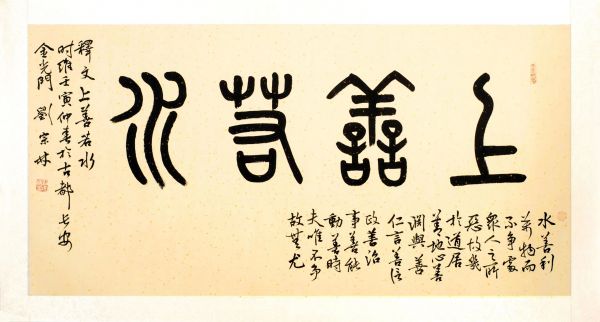 上善若水
水善利
萬物而
不争處
衆人之所
惡故幾
於道居
善地心善
渊與善
仁言善信
政善治
事善能
動善時
夫唯不争
故無尤
釋文上善若水
时维壬寅仲春於古都长安
金光門劉宗